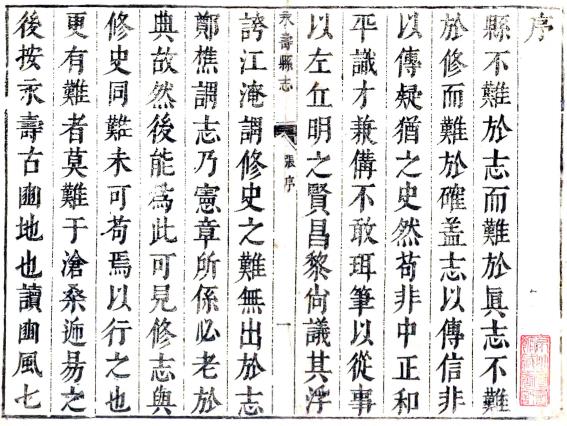 序
縣不難於志而難於眞志不難
於修而難於確盖志以傳信非
以傳疑猶之史然苟非中正和
平識才兼備不敢珥筆以從事
以左丘明之賢昌黎尙議其浮
永壽縣志 張序 一
誇江淹謂修史之難無出於志
鄭樵謂志乃憲章所係必老於
典故然後能爲此可見修志與
修史同難未可苟焉以行之也
更有難者莫難于滄桑逓易之
後按永壽古豳地也讀豳風七